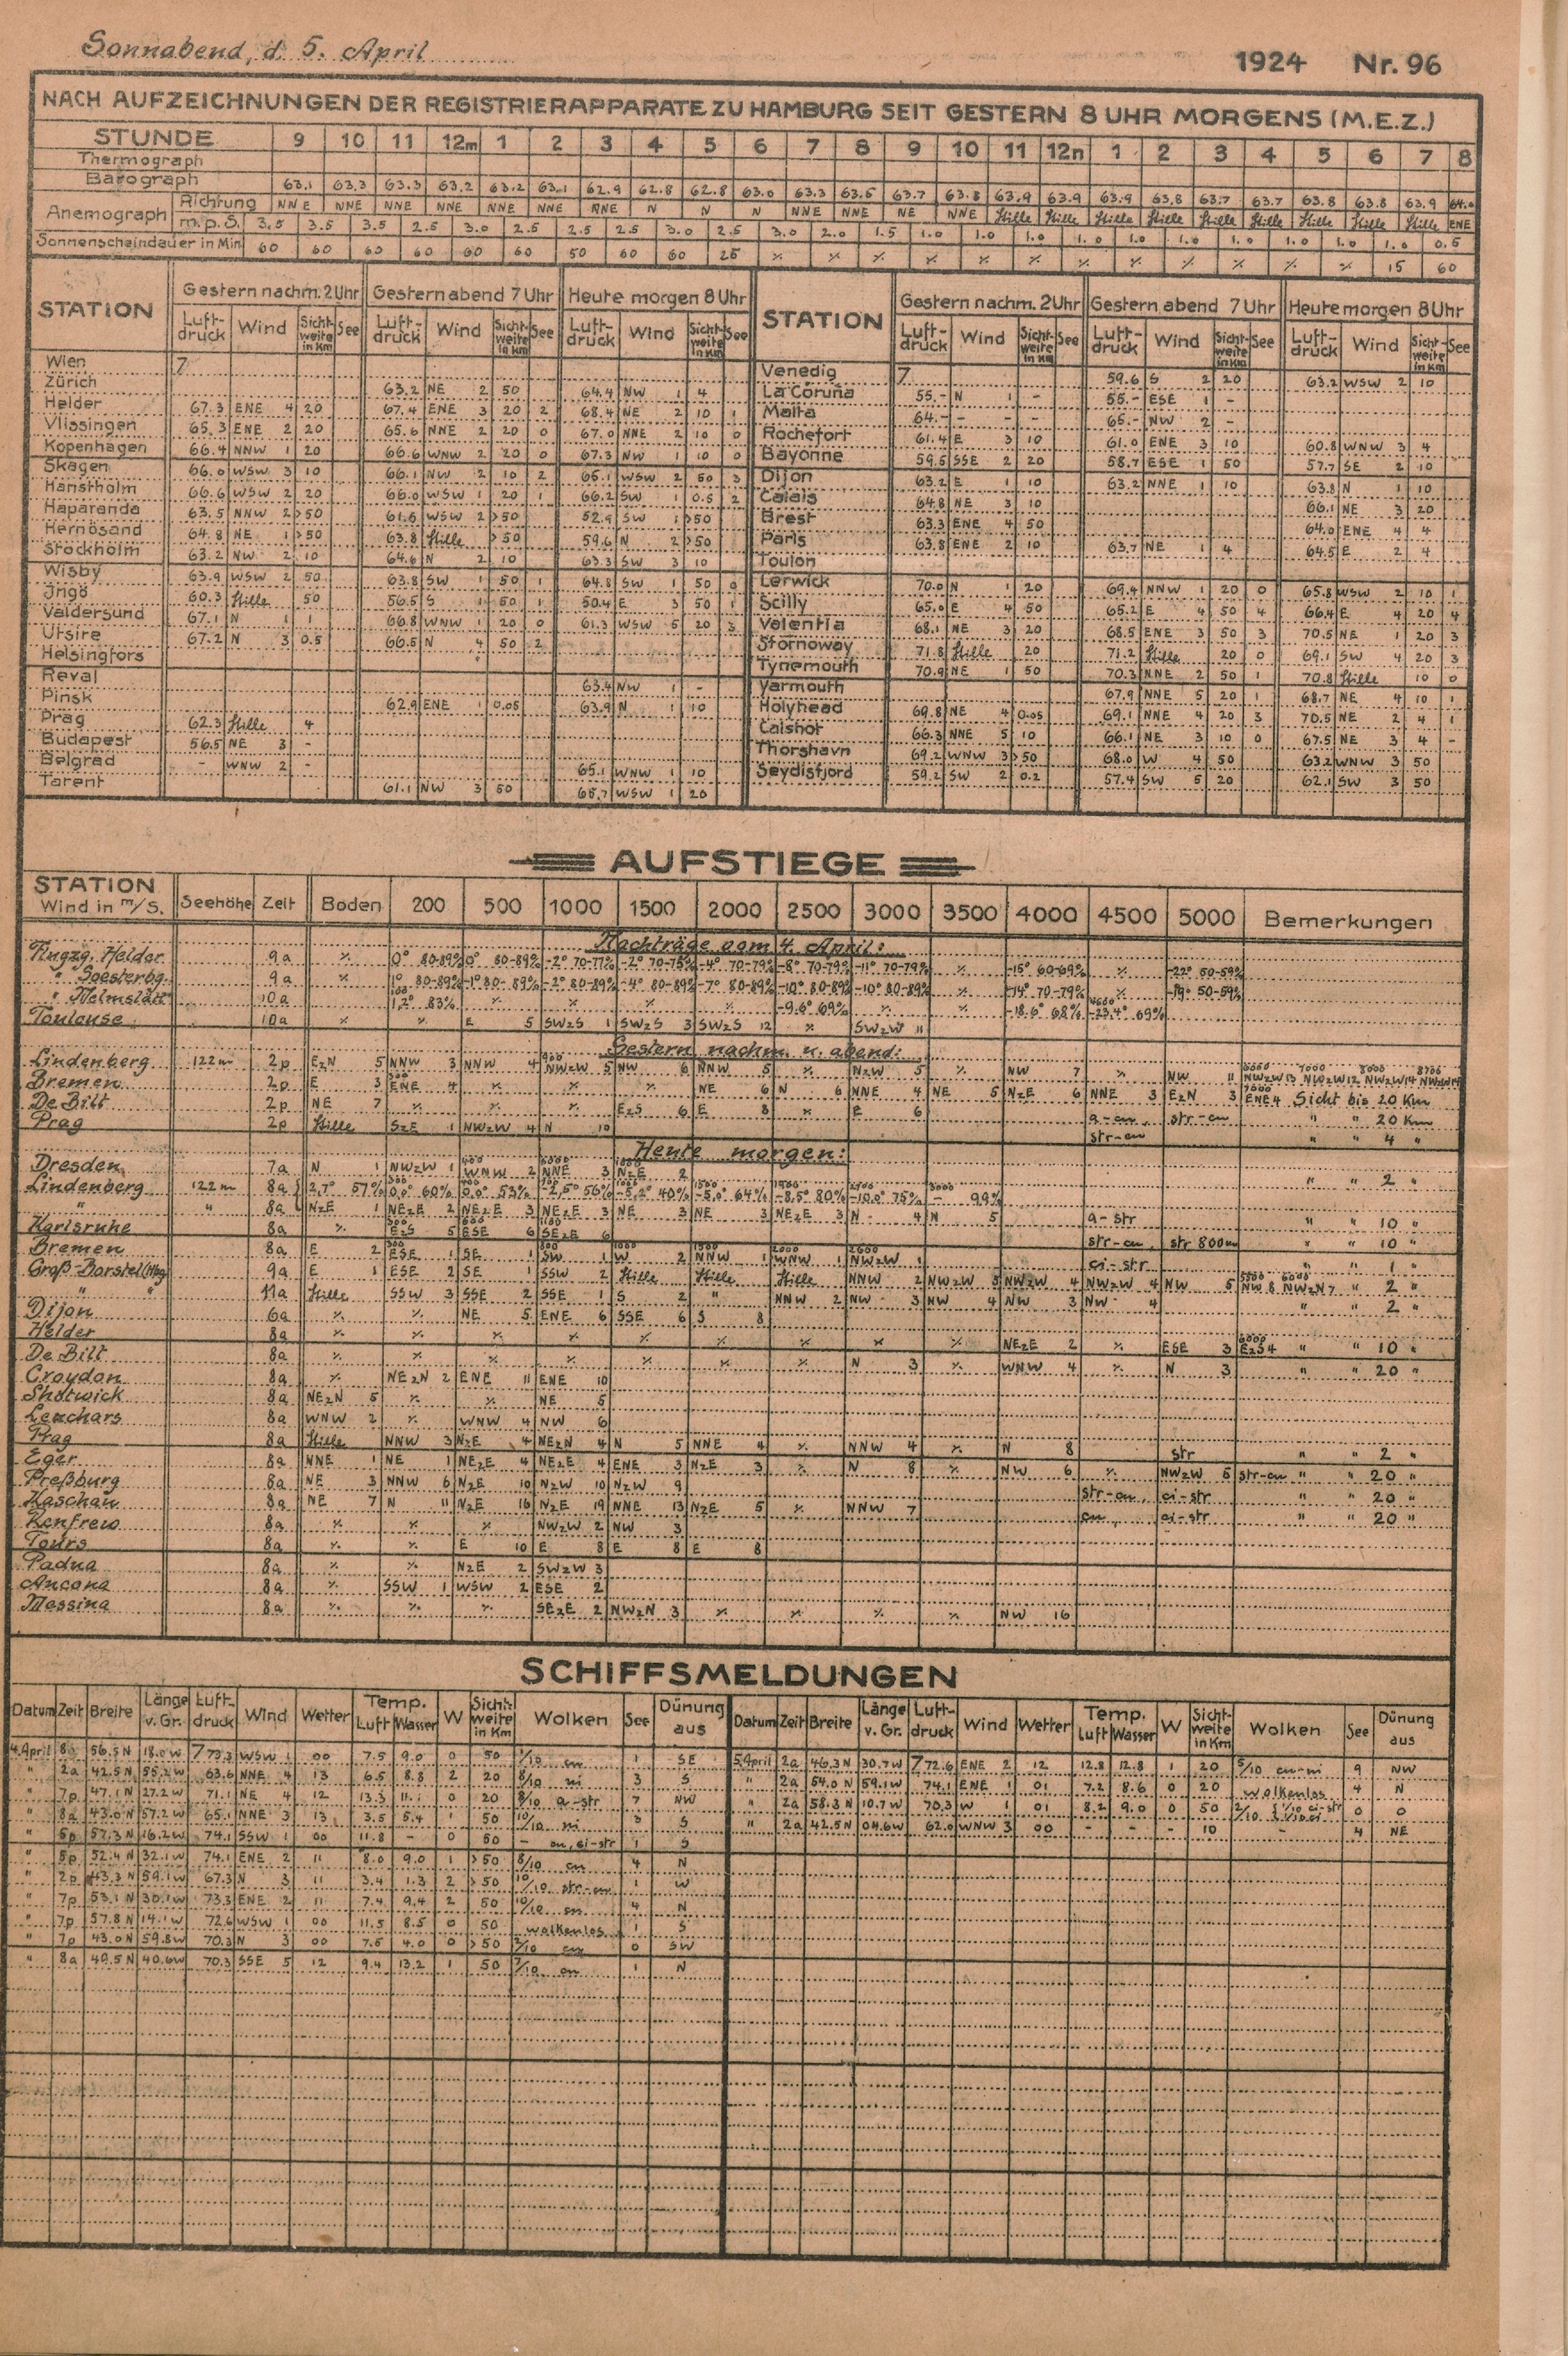 Sonnabend, d. 5. April 1924 Nr. 96
NACH AUFZEICHNUNGEN DER REGISTRIERAPPARATE ZU HAMBURG SEIT GESTERN 8 UHR MORGENS (M.E.Z.)
STUNDE 9 10 11 12m 1 2 3 4 5 6 7 8 9 10 11 12n 1 2 3 4 5 6 7 8
Thermograph
Barograph 63.1 63.3 63.3 63.2 63.2 63.1 62.9 62.8 62.8 63.0 63.3 63.5 63.7 63.8 63.9 63.9 63.9 63.8 63.7 63.7 63.8 63.8 63.9 64.0
Anemograph Richtung NNE NNE NNE NNE NNE NNE NNE N N N NNE NNE NE NNE Stille Stille Stille Stille Stille Stille Stille Stille Stille ENE
m.p.S. 3.5 3.5 3.5 2.5 3.0 2.5 2.5 2.5 3.0 2.5 3.0 2.0 1.5 1.0 1.0 1.0 1.0 1.0 1.0 1.0 1.0 1.0 0.5
Sonnenscheindauer in Min. 60 60 60 60 60 60 50 60 60 25 ٪ ٪ ٪ ٪ ٪ ٪ ٪ ٪ ٪ ٪ ٪ 15 60
STATION Gestern nachm. 2 Uhr Gestern abend 7 Uhr Heute morgen 8 Uhr STATION Gestern nachm. 2 Uhr Gestern abend 7 Uhr Heute morgen 8 Uhr
Luft-druck Wind Sicht-weite in Km See Luft-druck Wind Sicht-weite in Km See Luft-druck Wind Sicht-weite in Km See Luft-druck Wind Sicht-weite in Km See Luft-druck Wind Sicht-weite in Km See Luft-druck Wind Sicht-weite in Km See
Wien 7
Zürich 63.2 NE 2 50 64.4 NW 1 4
Helder 67.3 ENE 4 20 67.4 ENE 3 20 2 68.4 NE 2 10 1
Vlissingen 65.3 ENE 2 20 65.6 NNE 2 20 0 67.0 NNE 2 10 0
Kopenhagen 66.4 NNW 1 20 66.6 WNW 2 20 0 67.3 NW 1 10 0
Skagen 66.0 WSW 3 10 66.1 NW 2 10 2 65.1 WSW 2 50 3
Hanstholm 66.6 WSW 2 20 66.0 WSW 1 20 1 66.2 SW 1 0.5 2
Haparanda 63.5 NNW 2 >50 61.6 WSW 2 >50 52.9 SW 1 >50
Hernösand 64.8 NE 1 >50 63.8 Stille >50 59.6 N 2 >50
Stockholm 63.2 NW 2 10 64.6 N 2 10 63.3 SW 3 10
Wisby 63.9 WSW 2 50 63.8 SW 1 50 1 64.8 SW 1 50 0
Ingö 60.3 Stille 50 56.5 S 1 50 1 50.4 E 3 50 1
Valdersund 67.1 N 1 1 66.8 WNW 1 20 0 61.3 WSW 5 20 3
Utsire 67.2 N 3 0.5 66.5 N 4 50 2
Helsingfors
Reval 63.4 NW 1 -
Pinsk 62.9 ENE 1 0.05 63.9 N 1 10
Prag 62.3 Stille 4
Budapest 56.5 NE 3 -
Belgrad - WNW 2 - 65.1 WNW 1 10
Tarent 61.1 NW 3 50 65.7 WSW 1 20
Venedig 7 59.6 S 2 20 63.2 WSW 2 10
La Coruña 55.- N 1 - 55.- ESE 1 -
Malta 64.- - - 65.- NW 2 -
Rochefort 61.4 E 3 10 61.0 ENE 3 10 60.8 WNW 3 4
Bayonne 59.5 SSE 2 20 58.7 ESE 1 50 57.7 SE 2 10
Dijon 63.2 E 1 10 63.2 NNE 1 10 63.8 N 1 10
Calais 64.8 NE 3 10 66.1 NE 3 20
Brest 63.3 ENE 4 50 64.0 ENE 4 4
Paris 63.8 ENE 2 10 63.7 NE 1 4 64.5 E 2 4
Toulon
Lerwick 70.0 N 1 20 69.4 NNW 1 20 0 65.8 WSW 2 10 1
Scilly 65.0 E 4 50 65.2 E 4 50 4 66.4 E 4 20 4
Valentia 68.1 NE 3 20 68.5 ENE 3 50 3 70.5 NE 1 20 3
Stornoway 71.8 Stille 20 71.2 Stille 20 0 69.1 SW 4 20 3
Tynemouth 70.9 NE 1 50 70.3 NNE 2 50 1 70.8 Stille 10 0
Yarmouth 67.9 NNE 5 20 1 68.7 NE 4 10 1
Holyhead 69.8 NE 4 0.05 69.1 NNE 4 20 3 70.5 NE 2 4 1
Calshot 66.3 NNE 5 10 66.1 NE 3 10 0 67.5 NE 3 4 -
Thorshavn 69.2 WNW 3 >50 68.0 W 4 50 63.2 WNW 3 50
Seydisfjord 59.2 SW 2 0.2 57.4 SW 5 20 62.1 SW 3 50
AUFSTIEGE
STATION Wind in m/S. Seehöhe Zeit Boden 200 500 1000 1500 2000 2500 3000 3500 4000 4500 5000 Bemerkungen
Nachträge vom 4. April:
Flugzg. Helder 9a ٪ 0° 80-89% 0° 80-89% -2° 70-77% -2° 70-75% -4° 70-79% -8° 70-79% -11° 70-79% ٪ -15° 60-69% ٪ -22° 50-59%
" Soesterbg. 9a ٪ 1° 80-89% -1° 80-89% -2° 80-89% -4° 80-89% -7° 80-89% -10° 80-89% -10° 80-89% ٪ -14° 70-79% ٪ -19° 50-59%
" Helmstädt 10a 100 1,2° 83% ٪ ٪ ٪ ٪ -9.6° 69% ٪ ٪ -18.6° 68% 4600 -23.4° 69%
Toulouse 10a ٪ ٪ E 5 SWzS 1 SWzS 3 SWzS 12 ٪ SWzW 11
Gestern nachm. u. abend:
Lindenberg 122m 2p EzN 5 NNW 3 NNW 4 900 NWzW 5 NW 6 NNW 5 ٪ NzW 5 ٪ NW 7 ٪ NW 11 6000 NWzW 13 7000 NWzW 12 8000 NWzW 14 8700 NWzW 14
Bremen 2p E 3 300 ENE 4 ٪ ٪ ٪ NE 6 N 6 NNE 4 NE 5 NzE 6 NNE 3 EzN 3 7000 ENE 4 Sicht bis 20 Km
De Bilt 2p NE 7 ٪ ٪ ٪ EzS 6 E 8 ٪ E 6 a-cu, str-cu " " 20 Km
Prag 2p Stille SzE 1 NWzW 4 N 10 str-cu " " 4 "
Heute morgen:
Dresden 7a N 1 NWzW 1 400 WNW 2 NNE 3 NzE 2 " " 2 "
Lindenberg 122m 8a 2,7° 57% 0,0° 60% 0,0° 53% -2,5° 56% -5,2° 40% -5,0° 64% -8,5° 80% -10.0° 75% 3000 - 99%
" " 8a NzE 1 NEzE 2 NEzE 3 NEzE 3 NE 3 NE 3 NEzE 3 N 4 N 5 a-str " " 10 "
Karlsruhe 8a ٪ 300 EzS 5 600 ESE 6 1100 SEzE 6 str-cu, str 800m " " 10 "
Bremen 8a E 2 300 ESE 1 SE 1 800 SW 1 1000 W 2 1500 NNW 1 2000 WNW 1 2600 NWzW 1 ci-str " " 1 "
Groß-Borstel (Hbg) 9a E 1 ESE 2 SE 1 SSW 2 Stille Stille Stille NNW 2 NWzW 3 NWzW 4 NWzW 4 NW 5 5500 NW 8 6000 NWzN 7 " 2 "
" " 11a Stille SSW 3 SSE 2 SSE 1 S 2 " NNW 2 NW 3 NW 4 NW 3 NW 4 " " 2 "
Dijon 6a ٪ ٪ NE 5 ENE 6 SSE 6 S 8
Helder 8a ٪ ٪ ٪ ٪ ٪ ٪ ٪ ٪ ٪ NEzE 2 ٪ ESE 3 6000 EzS 4 " " 10 "
De Bilt 8a ٪ ٪ ٪ ٪ ٪ ٪ ٪ N 3 ٪ WNW 4 ٪ N 3 " " 20 "
Croydon 8a ٪ NEzN 2 ENE 11 ENE 10
Shotwick 8a NEzN 5 ٪ ٪ NE 5
Leuchars 8a WNW 2 ٪ WNW 4 NW 6
Prag 8a Stille NNW 3 NzE 4 NEzN 4 N 5 NNE 4 ٪ NNW 4 ٪ N 8 str " " 2 "
Eger 8a NNE 1 NE 1 NEzE 4 NEzE 4 ENE 3 NzE 3 ٪ N 8 ٪ NW 6 ٪ NWzW 5 str-cu " " 20 "
Preßburg 8a NE 3 NNW 6 NzE 10 NzW 10 NzW 9 str-cu, ci-str " " 20 "
Kaschau 8a NE 7 N 11 NzE 16 NzE 19 NNE 13 NzE 5 ٪ NNW 7 cu, ci-str " " 20 "
Renfrew 8a ٪ ٪ ٪ NWzW 2 NW 3
Tours 8a ٪ ٪ E 10 E 8 E 8 E 8
Padua 8a ٪ ٪ NzE 2 SWzW 3
Ancona 8a ٪ SSW 1 WSW 2 ESE 2
Messina 8a ٪ ٪ ٪ SEzE 2 NWzN 3 ٪ ٪ ٪ ٪ NW 16
SCHIFFSMELDUNGEN
Datum Zeit Breite Länge v. Gr. Luft-druck Wind Wetter Temp. Luft Wasser W Sicht-weite in Km Wolken See Dünung aus Datum Zeit Breite Länge v. Gr. Luft-druck Wind Wetter Temp. Luft Wasser W Sicht-weite in Km Wolken See Dünung aus
4. April 8a 56.5 N 18.0 W 773.3 WSW 1 00 7.5 9.0 0 50 1/10 cu 1 SE
" 2a 42.5 N 55.2 W 63.6 NNE 4 13 6.5 8.8 2 20 8/10 ni 3 S
" 7p 47.1 N 27.2 W 71.1 NE 4 12 13.3 11.1 0 20 8/10 a-str 7 NW
" 8a 43.0 N 57.2 W 65.1 NNE 3 13 3.5 5.4 1 50 10/10 ni 3 S
" 5p 57.3 N 16.2 W 74.1 SSW 1 00 11.8 - 0 50 - cu, ci-str 1 S
" 5p 52.4 N 32.1 W 74.1 ENE 2 11 8.0 9.0 1 >50 8/10 cu 4 N
" 2p 43.3 N 59.1 W 67.3 N 3 11 3.4 1.3 2 >50 10/10 str-cu 1 W
" 7p 53.1 N 30.1 W 73.3 ENE 2 11 7.4 9.4 2 50 10/10 cu 4 N
" 7p 57.8 N 14.1 W 72.6 WSW 1 00 11.5 8.5 0 50 wolkenlos 1 S
" 7p 43.0 N 59.8 W 70.3 N 3 00 7.5 4.0 0 >50 2/10 cu 0 SW
" 8a 49.5 N 40.6 W 70.3 SSE 5 12 9.4 13.2 1 50 7/10 cu 1 N
5. April 2a 46.3 N 30.7 W 772.6 ENE 2 12 12.8 12.8 1 20 5/10 cu-ni 9 NW
" 2a 54.0 N 59.1 W 74.1 ENE 1 01 7.2 8.6 0 20 wolkenlos 4 N
" 2a 58.3 N 10.7 W 70.3 W 1 01 8.2 9.0 0 50 2/10 { 1/10 ci-str 1/10 ci 0 0
" 2a 42.5 N 04.6 W 62.0 WNW 3 00 - - - 10 - 4 NE